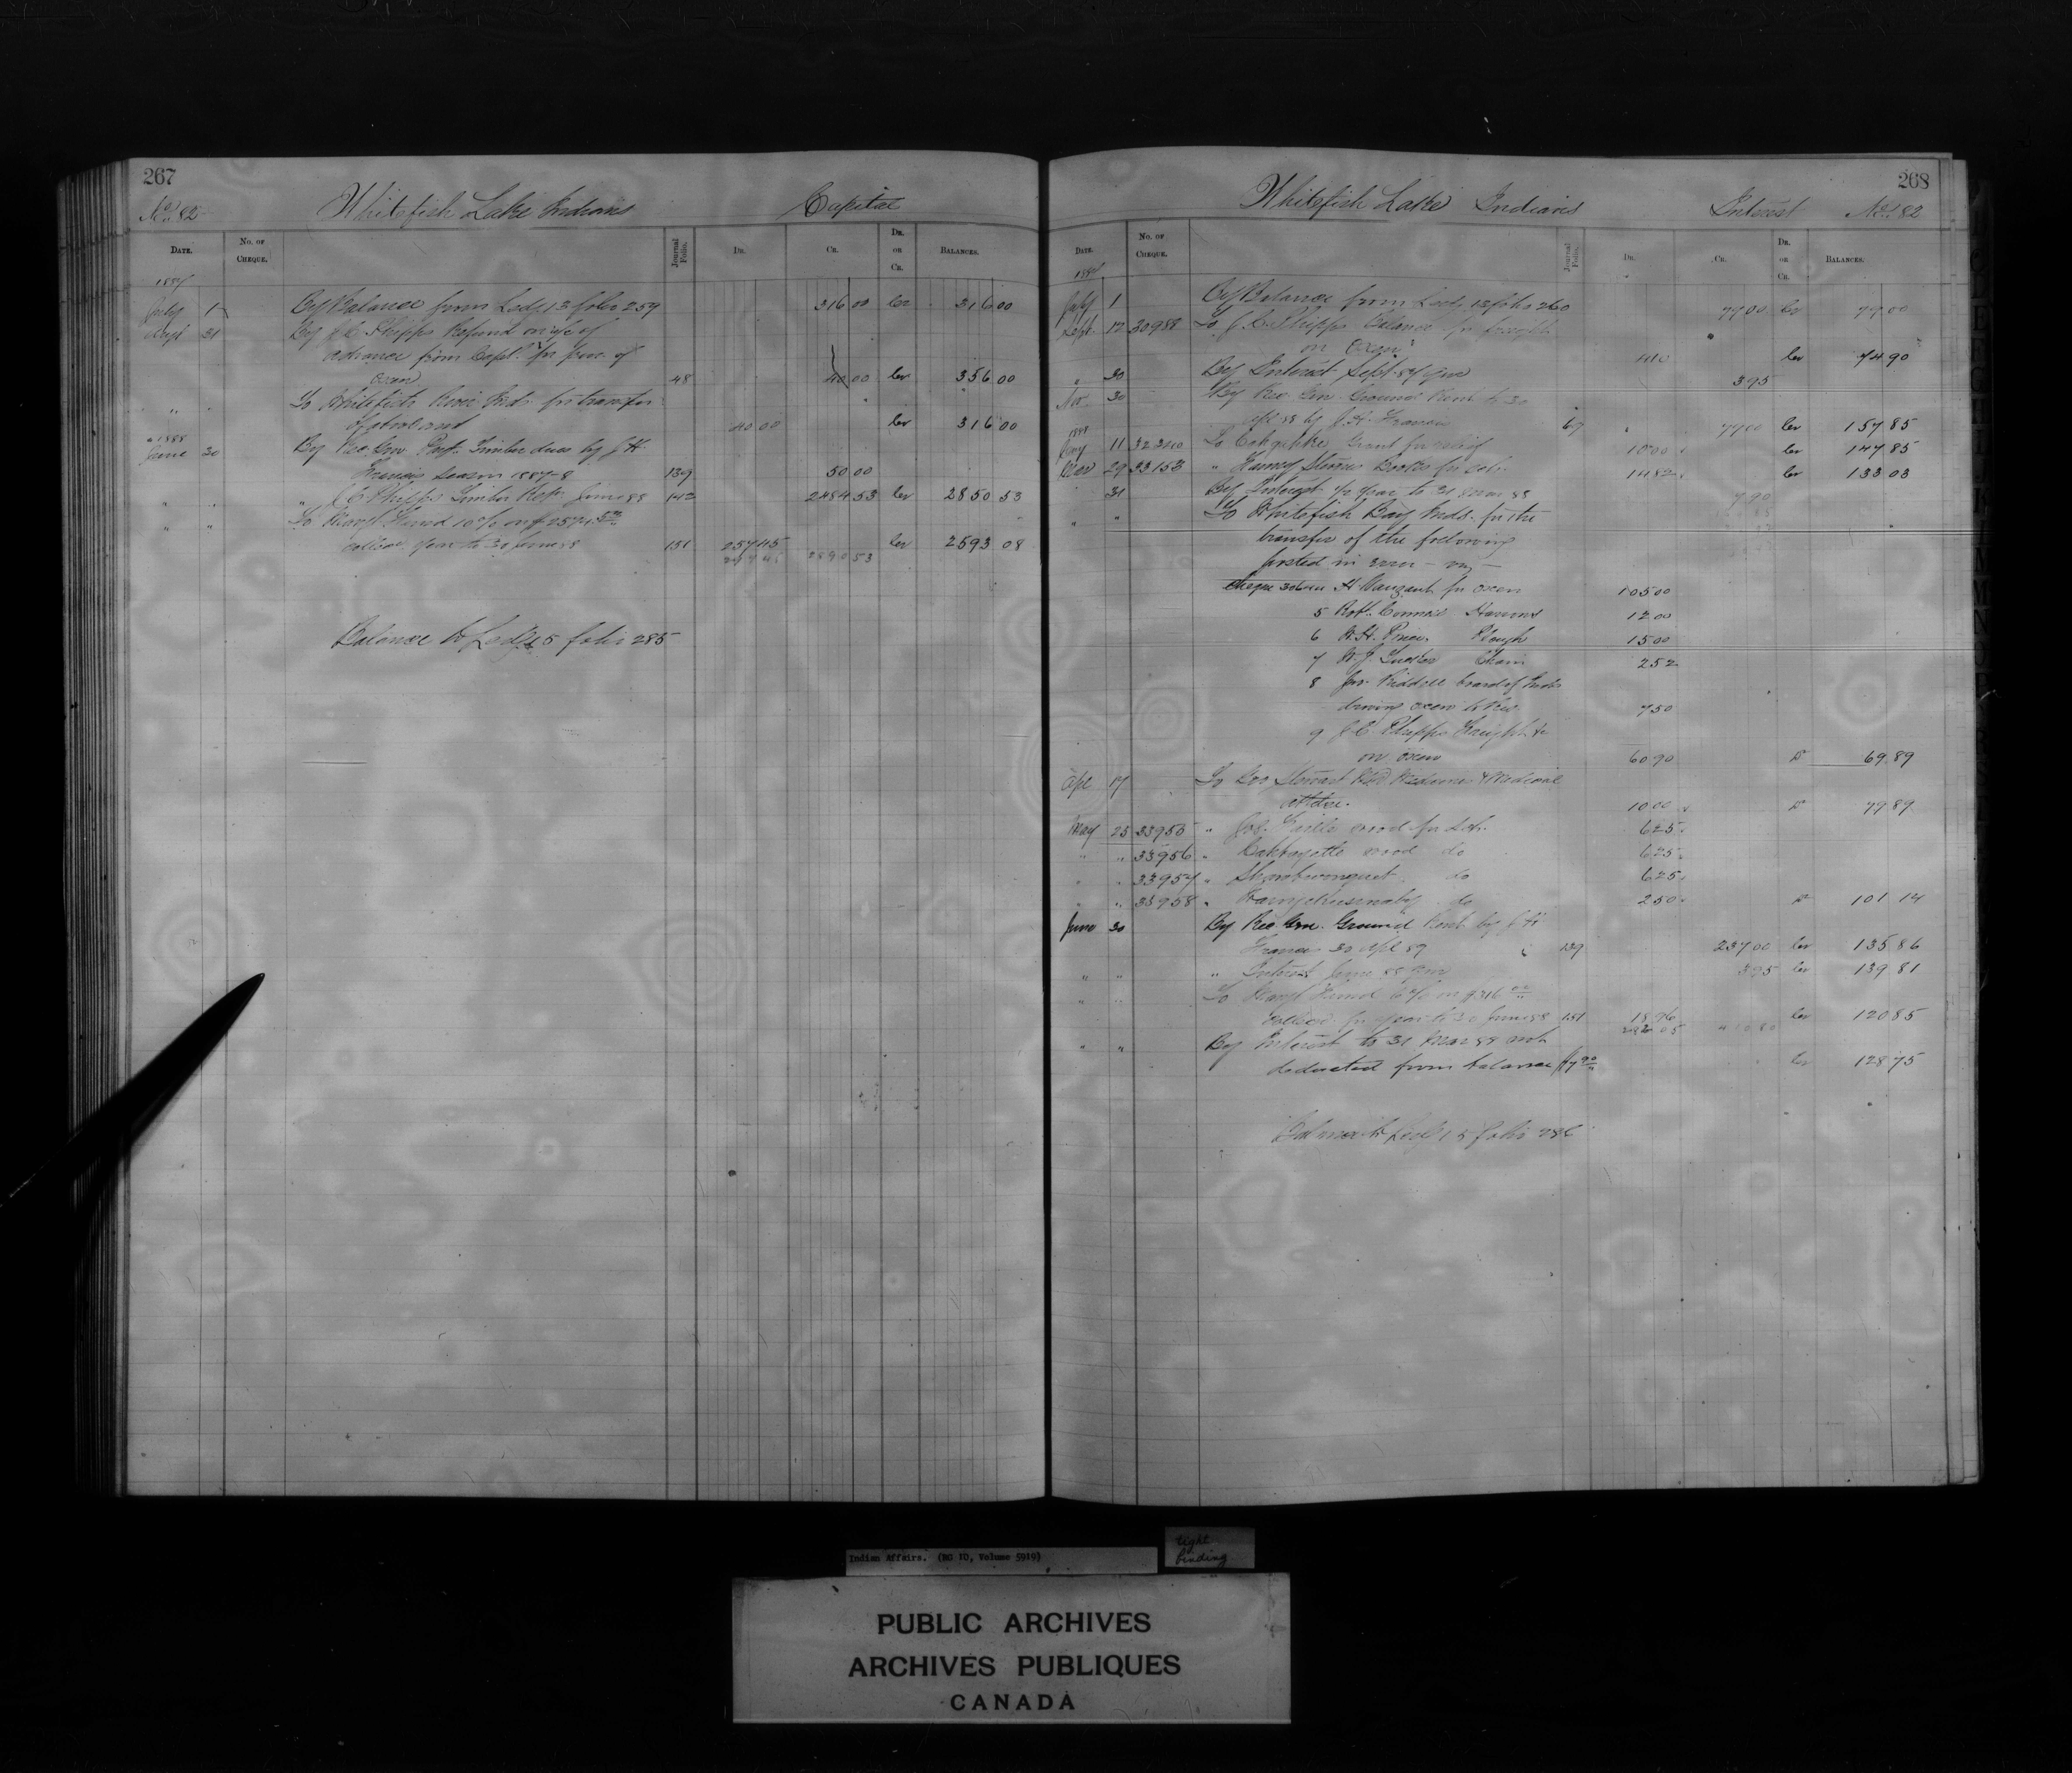 267
No. 82 Whitefish Lake Indians Capital
DATE. No. OF CHEQUE. Journal Folio. DR. CR. DR. OR CR. BALANCES.
1887
July 1 By Balance from Ledg. 13 folio 259 316 00 Cr 316 00
31 By J.C. Phipps Refund on a/c of
advance from Capl. for pur. of
Oxen 48 40 00 Cr 356 00
" To Whitefish River Inds. for transfer
of above amt 40 00 Cr 316 00
" 1888
June 30 By Rec. Gen. Part. Timber dues by J H
Francis season 1887-8 139 50 00
" " " J C Phipps Timber Retn June 88 142 2484 53 Cr 2850 53
" " To Mangt. Fund 10% on $2574.53
collecd. year to 30 June 88 151 257 45 Cr 2593 08
297 45 2890 53
Balance to Ledg. 15 folio 285
268
Whitefish Lake Indians Interest No. 82
DATE. No. OF CHEQUE. Journal Folio. DR. CR. DR. OR CR. BALANCES.
1887
July 1 By Balance from Ledg. 13 folio 260 79 00 Cr 79 00
Sept. 12 30988 To J.C. Phipps Balance for freight
on Oxen 4 10 Cr 74 90
" 30 By Interest Sept. 87 3 95
Nov. 30 By Rec. Gen. Ground Rent to 30
Apl 88 by J. H. Francis 67 79 00 Cr 157 85
1888
Jany 11 To Grant for relief 10 00 Cr 147 85
Mar 29 33153 " Books for sch. 14 82 Cr 133 03
" 31 By Interest 1/2 year to 31 Mar 88 7 90
" " To Whitefish Bay Inds. for the
transfer of the following
posted in error - viz -
cheque for Oxen 105 00
5 Robt. Harness 12 00
6 W.H. Price. Plough 15 00
7 W. J. Chain 2 52
8 Jas. Riddell board of Inds
driving oxen to Res. 7 50
9 J.C. Phipps Freight &c
on oxen 60 90 Dr 69 89
Apl 17 To Stewart Medicines & Medical
Attdce. 10 00 Dr 79 89
May 25 33955 " wood for sch. 6 25
" " 33956 " wood do 6 25
" " 33957 " do 6 25
" " 33958 " do 2 50 Dr 101 14
June 30 By Rec. Gen. Ground Rent by J H
Francis 30 Apl 89 139 237 00 Cr 135 86
" " " Interest June 88 3 95 Cr 139 81
" " To Mangt Fund 6% on $316.00
collecd. for year to 30 June 88 151 18 96 Cr 120 85
" " By Interest to 31 Mar 88 not
deducted from balance $7.90 Cr 128 75
Balance to Ledg. 15 folio 286
Indian Affairs. (RG 10, Volume 5919)
tight
binding
PUBLIC ARCHIVES
ARCHIVES PUBLIQUES
CANADA